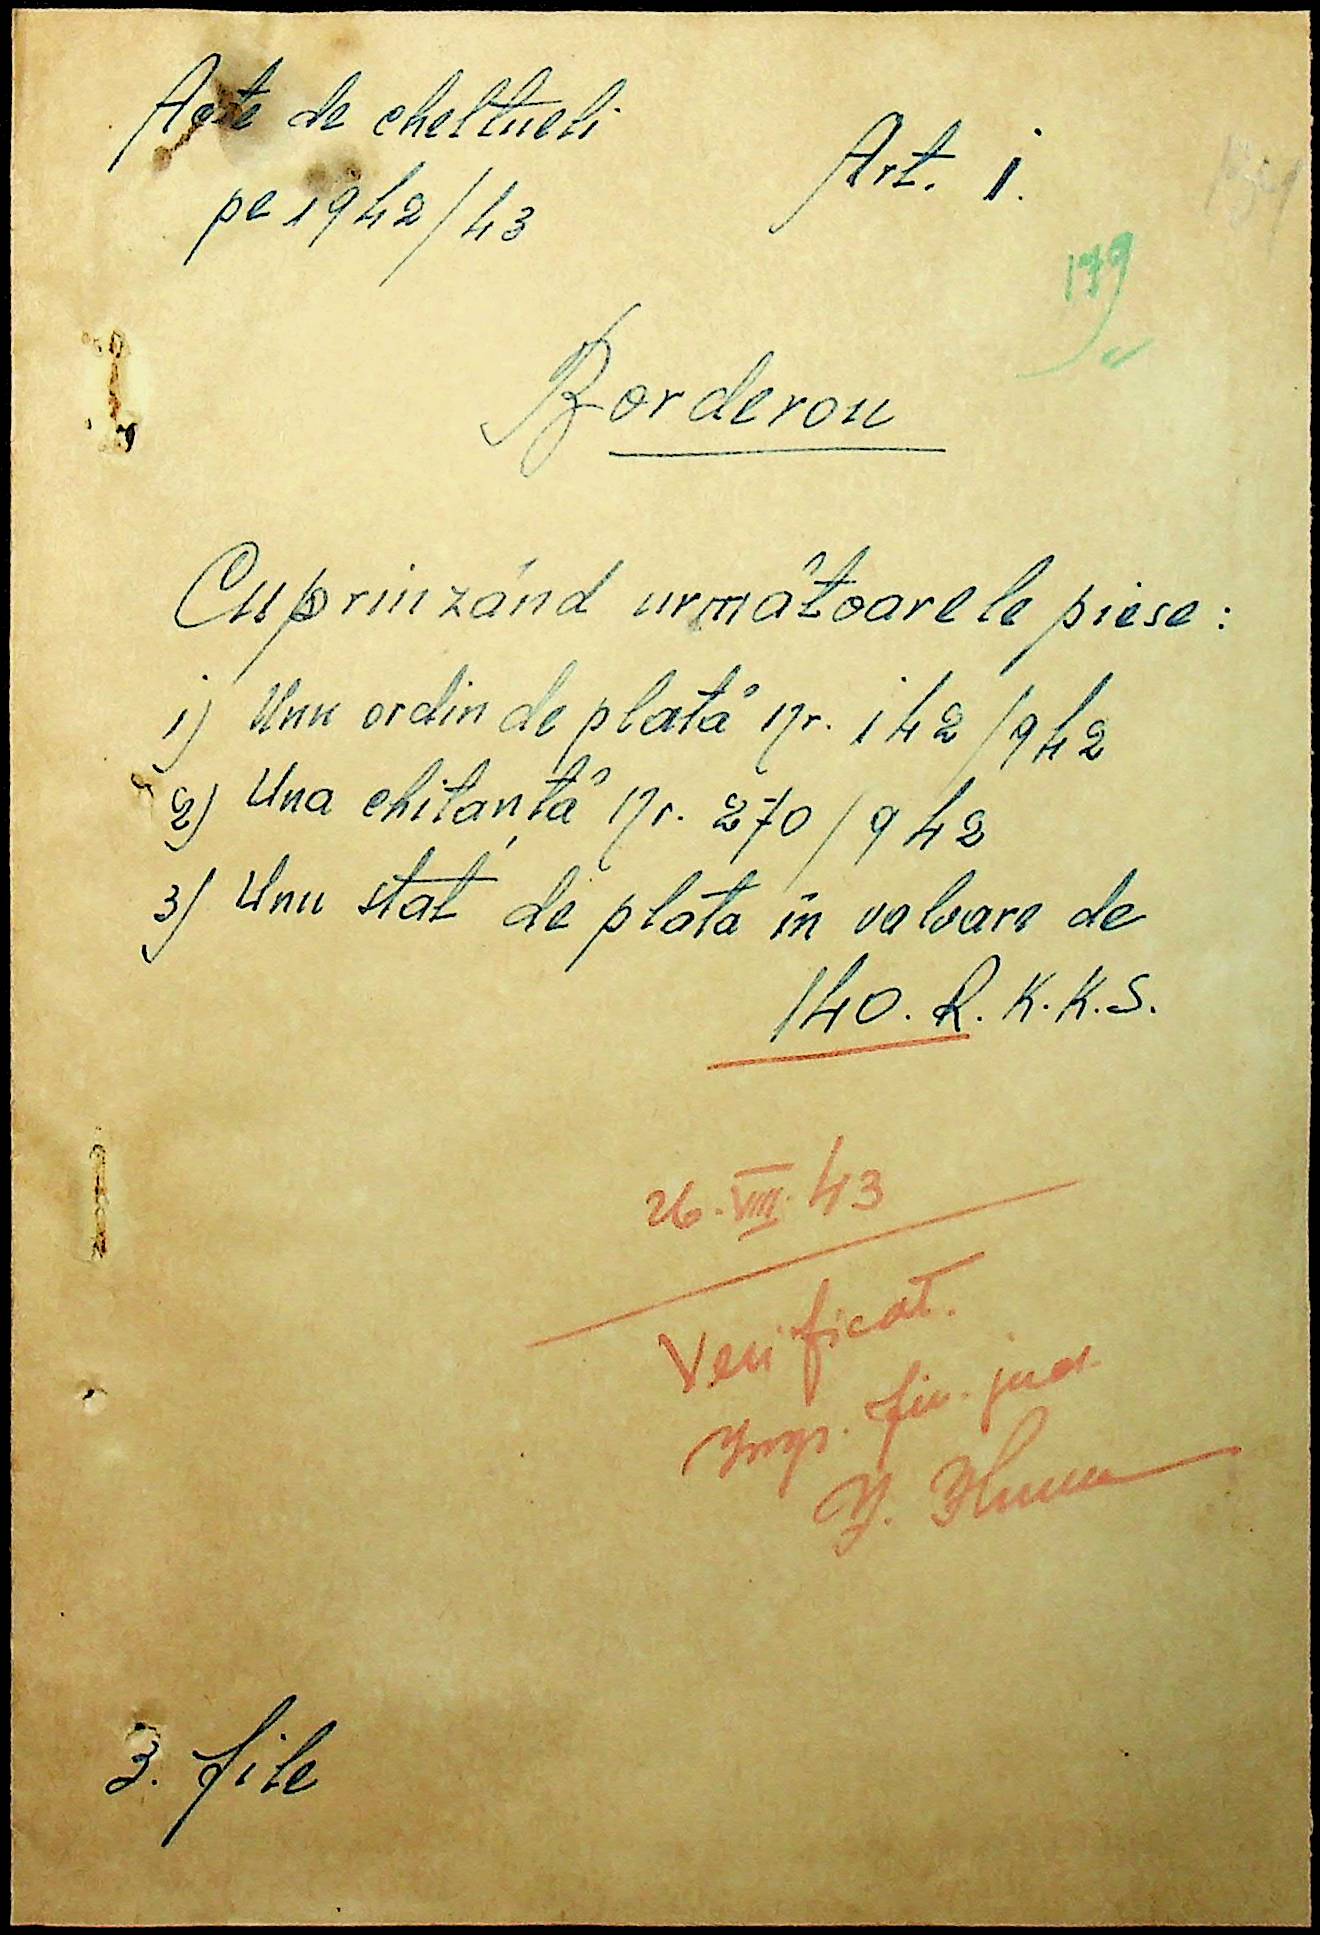 Acte de cheltueli
pe 1942/43
Art. 1.
179
Borderou
Cuprinzând următoarele piese:
1) Unu ordin de plată Nr. 142/942
2) Una chitanță Nr. 270/942
3) Unu stat de plata in valoare de
140. R. K.K.S.
26.VIII.43
Verificat.
Insp. fin. jud.
3. file